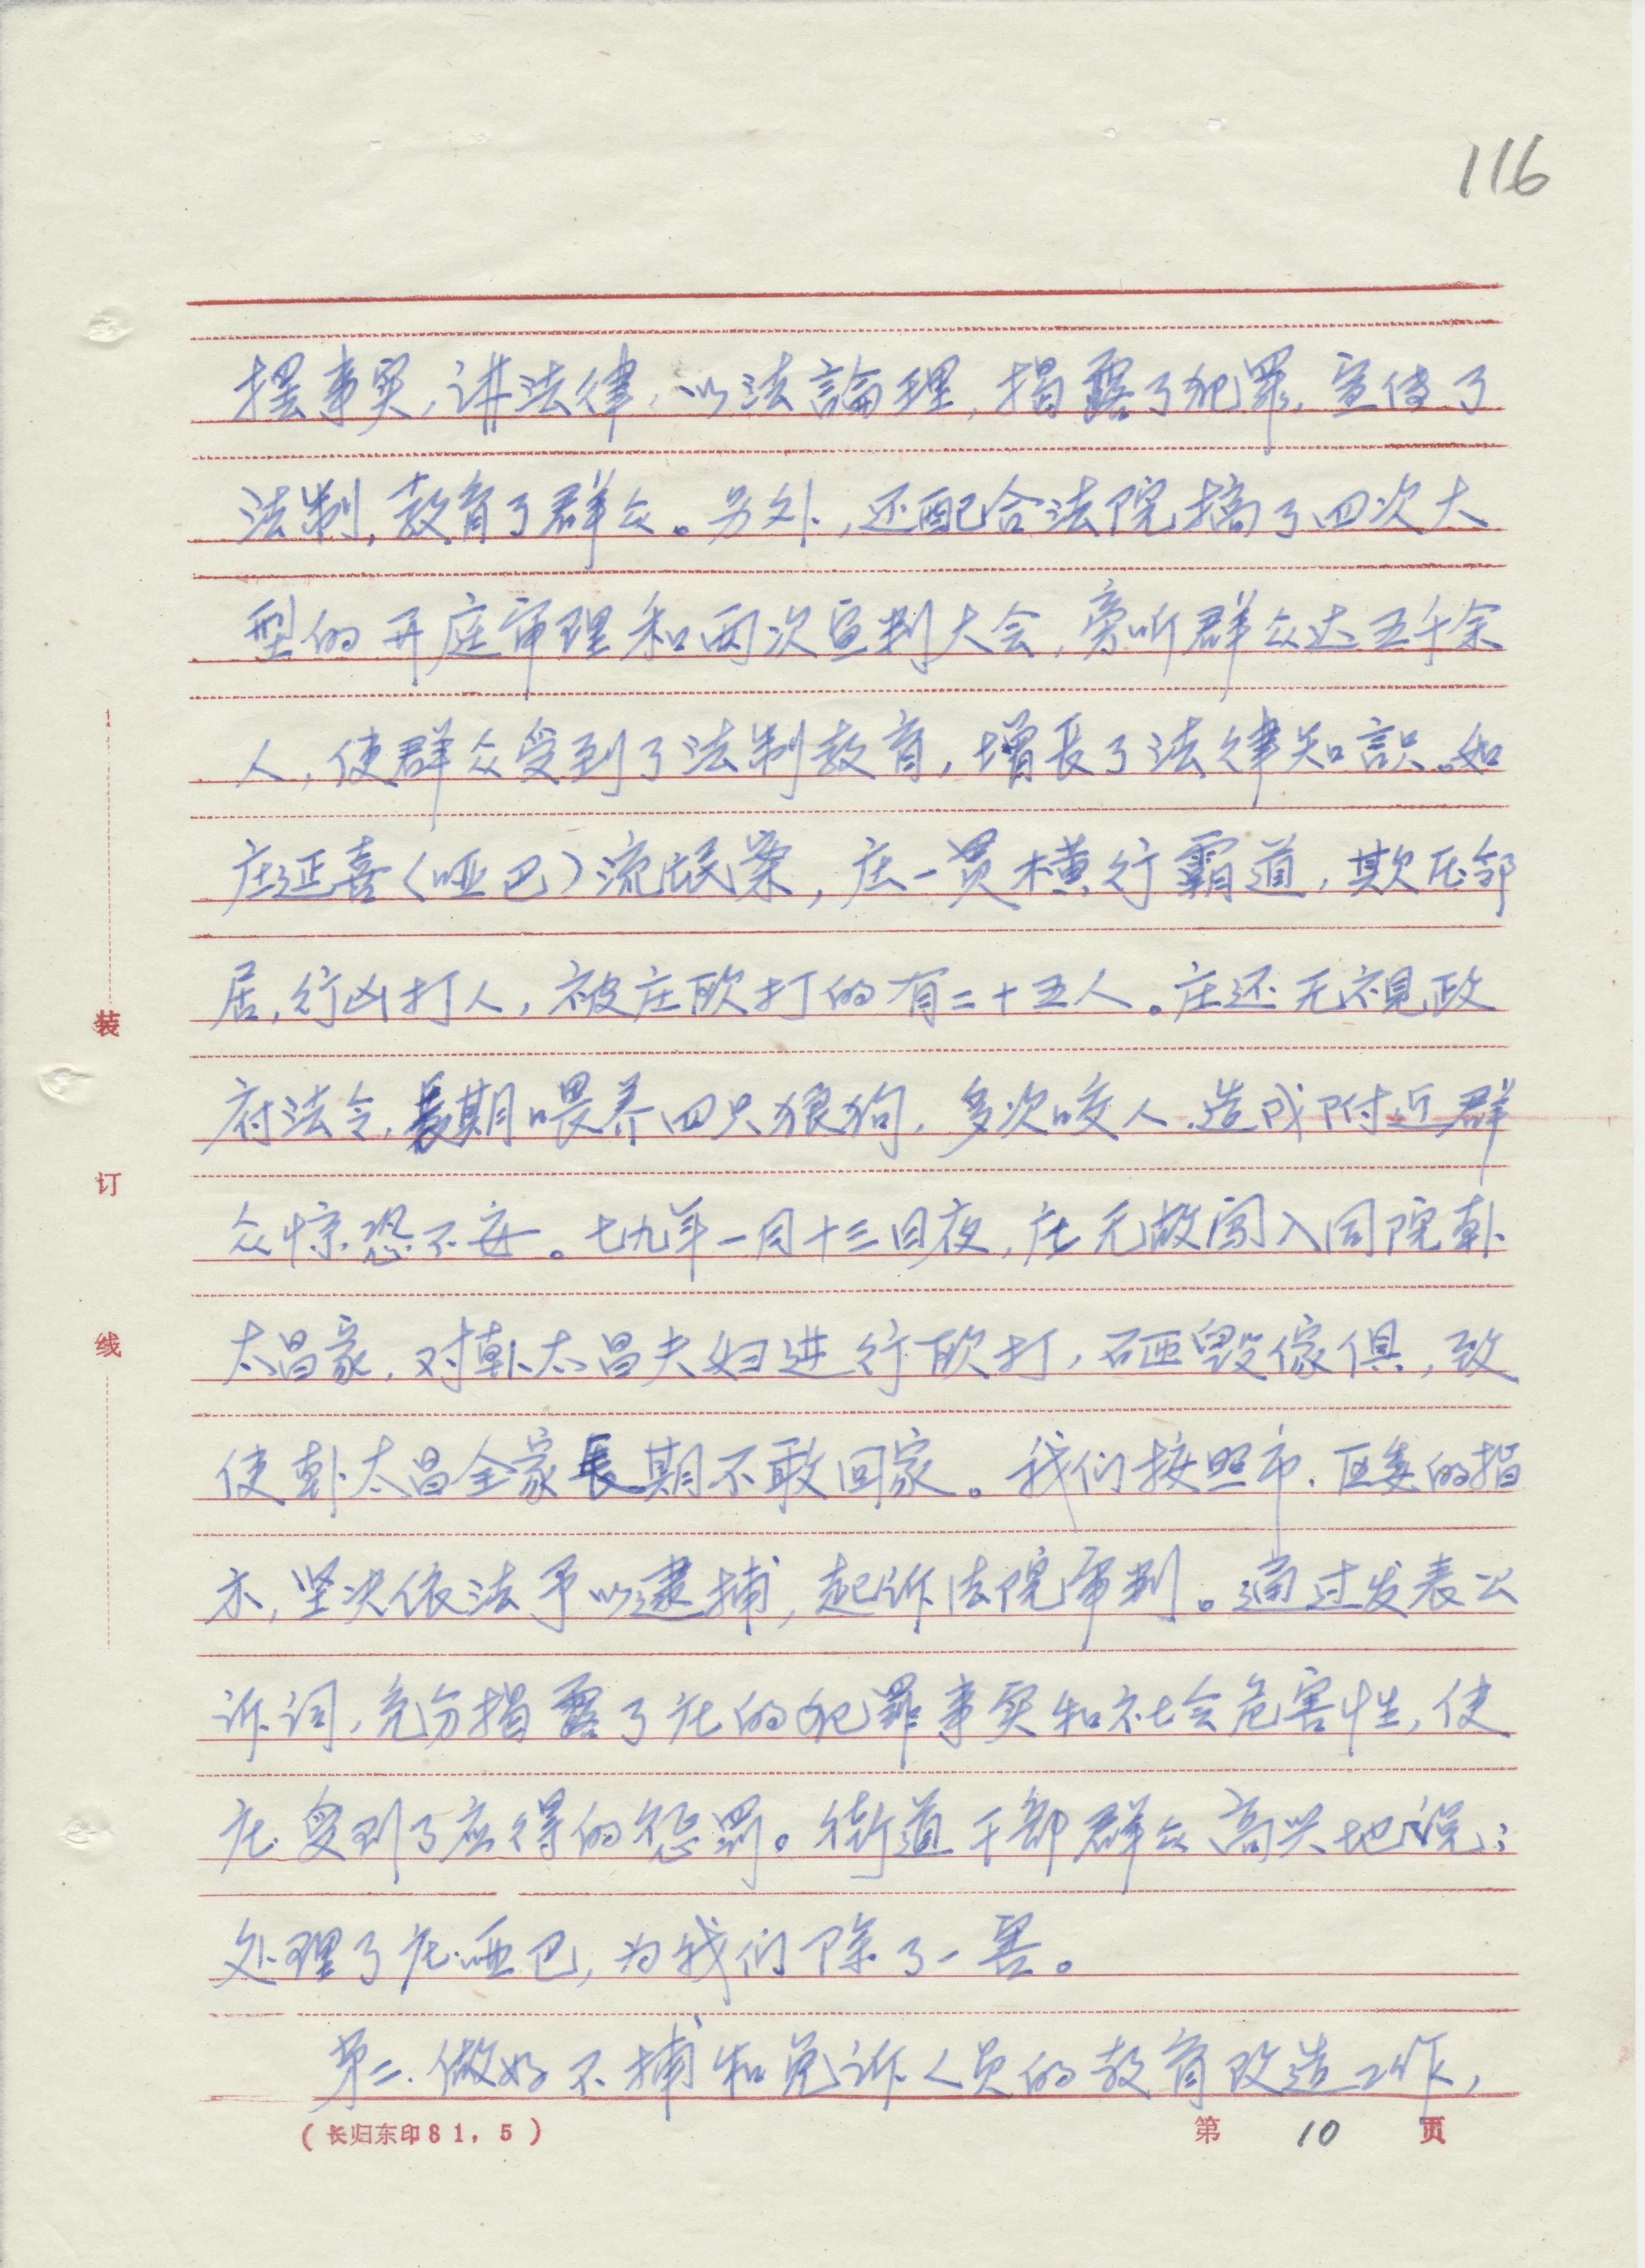 116
摆事实，讲法律，以法論理，揭露了犯罪，宣传了
法制，教育了群众。另外，还配合法院搞了四次大
型的开庭审理和两次宣判大会，旁听群众达五千余
人，使群众受到了法制教育，增长了法律知識。如
庄延喜（哑巴）流氓案，庄一贯横行霸道，欺压邻
居，行凶打人，被庄砍打的有二十五人。庄还无视政
府法令，長期喂养四只狼狗，多次咬人，造成附近群
众惊恐不安。七九年一月十三日夜，庄无故闯入同院韩
太昌家，对韩太昌夫妇进行砍打，砸毁傢俱，致
使韩太昌全家長期不敢回家。我们按照市、区委的指
示，坚决依法予以逮捕，起诉法院审判。通过发表公
诉词，充分揭露了庄的犯罪事实和社会危害性，使
庄受到了应得的惩罰。街道干部群众高兴地说：
处理了庄哑巴，为我们除了一害。
第二、做好不捕和免诉人员的教育改造工作，
装
订
线
（长归东印81，5）
第 10 页